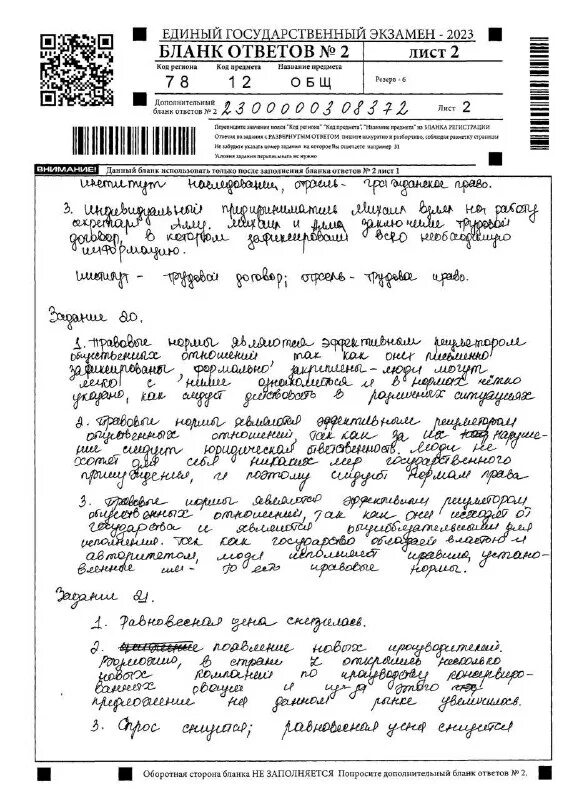 ЕДИНЫЙ ГОСУДАРСТВЕННЫЙ ЭКЗАМЕН - 2023
БЛАНК ОТВЕТОВ № 2 ЛИСТ 2
Код региона Код предмета Название предмета
78 12 ОБЩ Резерв - 6
Дополнительный
бланк ответов № 2 2300000308372 Лист 2
Перепишите значения полей "Код региона", "Код предмета", "Название предмета" из БЛАНКА РЕГИСТРАЦИИ
Отвечая на задания с РАЗВЕРНУТЫМ ОТВЕТОМ пишите аккуратно и разборчиво, соблюдая разметку страницы
Не забудьте указать номер задания на которое Вы отвечаете например 31
Условия задания переписывать не нужно
ВНИМАНИЕ! Данный бланк использовать только после заполнения бланка ответов № 2 лист 1
институт наследования, отрасль - гражданское право.
3. Индивидуальный предприниматель Михаил взял на работу
секретаря Аллу. Михаил и Алла заключили трудовой
договор, в котором зафиксировали всю необходимую
информацию.
институт - трудовой договор; отрасль - трудовое право.
Задание 20.
1. Правовые нормы являются эффективным регулятором
общественных отношений так как они письменно
зафиксированы, формально закреплены - люди могут
легко с ними ознакомиться и в нормах чётко
указано, как следует действовать в различных ситуациях
2. Правовые нормы являются эффективным регулятором
общественных отношений, так как за их наруше-
ние следует юридическая ответственность. Люди не
хотят для себя никаких мер государственного
принуждения, и поэтому следуют нормам права
3. Правовые нормы являются эффективным регулятором
общественных отношений, так как они исходят от
государства и являются общеобязательными для
исполнения. Так как государство обладает властью и
авторитетом, люди исполняют правила, установ-
ленные им - то есть правовые нормы.
Задание 21.
1. Равновесная цена снизилась.
2. появление новых производителей.
Возможно, в стране Z открылись несколько
новых компаний по производству консервиро-
ванных овощей и из-за этого
предложение на данном рынке увеличилось.
3. Спрос снизится; равновесная цена снизится
Оборотная сторона бланка НЕ ЗАПОЛНЯЕТСЯ Попросите дополнительный бланк ответов № 2.